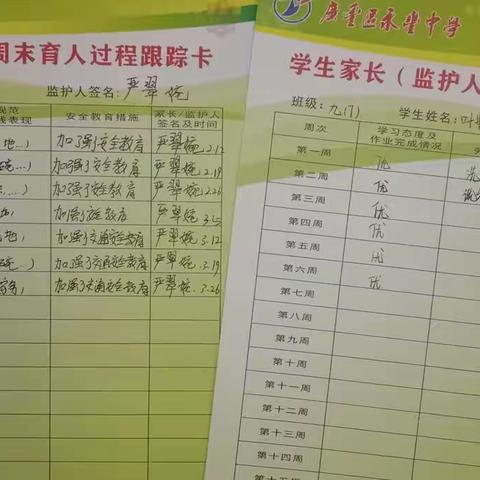 周末育人过程跟踪卡
监护人签名：严翠婉
规范 安全教育措施 家长/监护人
表现 签名及时间
地...) 加强了安全教育 严翠婉 2.12
碗...) 加强了安全教育 严翠婉 2.19
加强了安全教育 严翠婉 2.26
加强了安全教育 严翠婉 3.5
地) 加强了交通安全教育 严翠婉 3.12
碗...) 加强了交通安全教育 严翠婉 3.19
加强了交通安全教育 严翠婉 3.26
永丰中学
学生家长（监护人
班级：九(7) 学生姓名：叶
周次 学习态度及
作业完成情况
第一周 优 洗
第二周 优
第三周 优
第四周 优
第五周 优
第六周 优
第七周 优
第八周
第九周
第十周
第十一周
第十二周
第十三周
第十四周